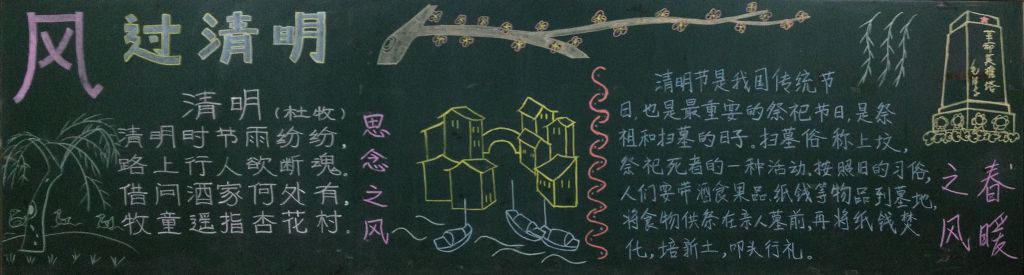 风过清明
清明(杜牧)
清明时节雨纷纷,
路上行人欲断魂.
借问酒家何处有,
牧童遥指杏花村.
思念之风
清明节是我国传统节
日,也是最重要的祭祀节日,是祭
祖和扫墓的日子。扫墓俗称上坟,
祭祀死者的一种活动.按照旧的习俗,
人们要带酒食果品,纸钱等物品到墓地,
将食物供祭在亲人墓前,再将纸钱焚
化,培新土,叩头行礼。
革命英雄塔
春暖
之风